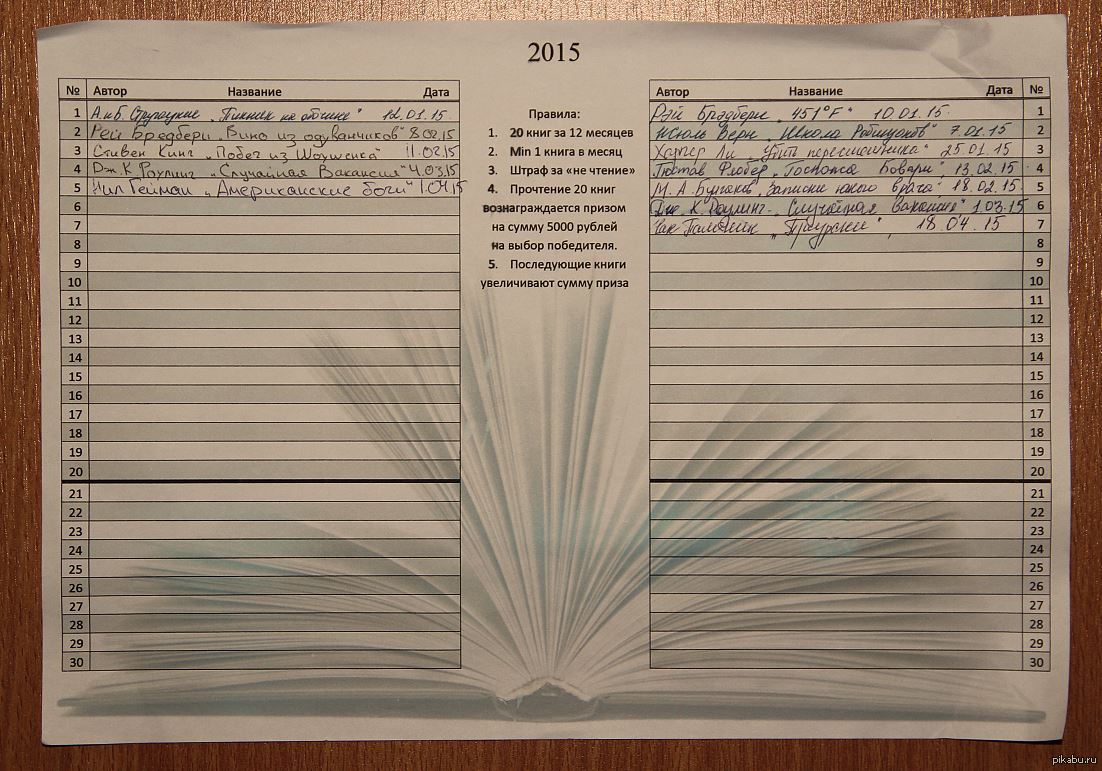 2015
№ Автор Название Дата
1 А. и Б. Стругацкие "Пикник на обочине" 12.01.15.
2 Рей Бредбери "Вино из одуванчиков" 8.02.15
3 Стивен Кинг "Побег из Шоушенка" 11.02.15
4 Дж. К Роулинг "Случайная Вакансия" 4.03.15
5 Нил Гейман "Американские боги" 1.04.15
6
7
8
9
10
11
12
13
14
15
16
17
18
19
20
21
22
23
24
25
26
27
28
29
30
Правила:
1. 20 книг за 12 месяцев
2. Min 1 книга в месяц
3. Штраф за «не чтение»
4. Прочтение 20 книг
вознаграждается призом
на сумму 5000 рублей
на выбор победителя.
5. Последующие книги
увеличивают сумму приза
Автор Название Дата №
Рэй Брэдбери "451°F" 10.01.15. 1
Жюль Верн "Школа Робинзонов" 7.01.15 2
Харпер Ли "Убить пересмешника" 25.01.15 3
Гюстав Флобер "Госпожа Бовари" 13.02.15 4
М. А. Булгаков "Записки юного врача" 18.02.15. 5
Дж. К. Роулинг "Случайная вакансия" 1.03.15 6
Чак Паланик 18.04.15 7
8
9
10
11
12
13
14
15
16
17
18
19
20
21
22
23
24
25
26
27
28
29
30
pikabu.ru